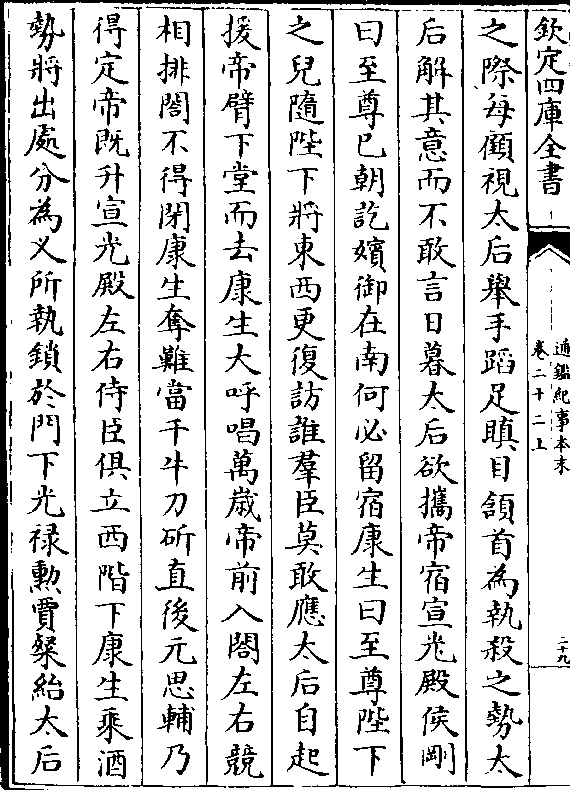 欽定四庫全書
通鑑紀事本末
卷二十二上
二十九
之際每顧視太后舉手蹈足瞋目頷首為執殺之勢太
后解其意而不敢言日暮太后欲攜帝宿宣光殿侯剛
曰至尊已朝訖嬪御在南何必留宿康生曰至尊陛下
之兒隨陛下將東西更復訪誰羣臣莫敢應太后自起
援帝臂下堂而去康生大呼唱萬歲帝前入閤左右競
相排閤不得閉康生奪難當千牛刀斫直後元思輔乃
得定帝既升宣光殿左右侍臣俱立西階下康生乘酒
勢將出處分為乂所執鎖於門下光禄勲賈粲紿太后